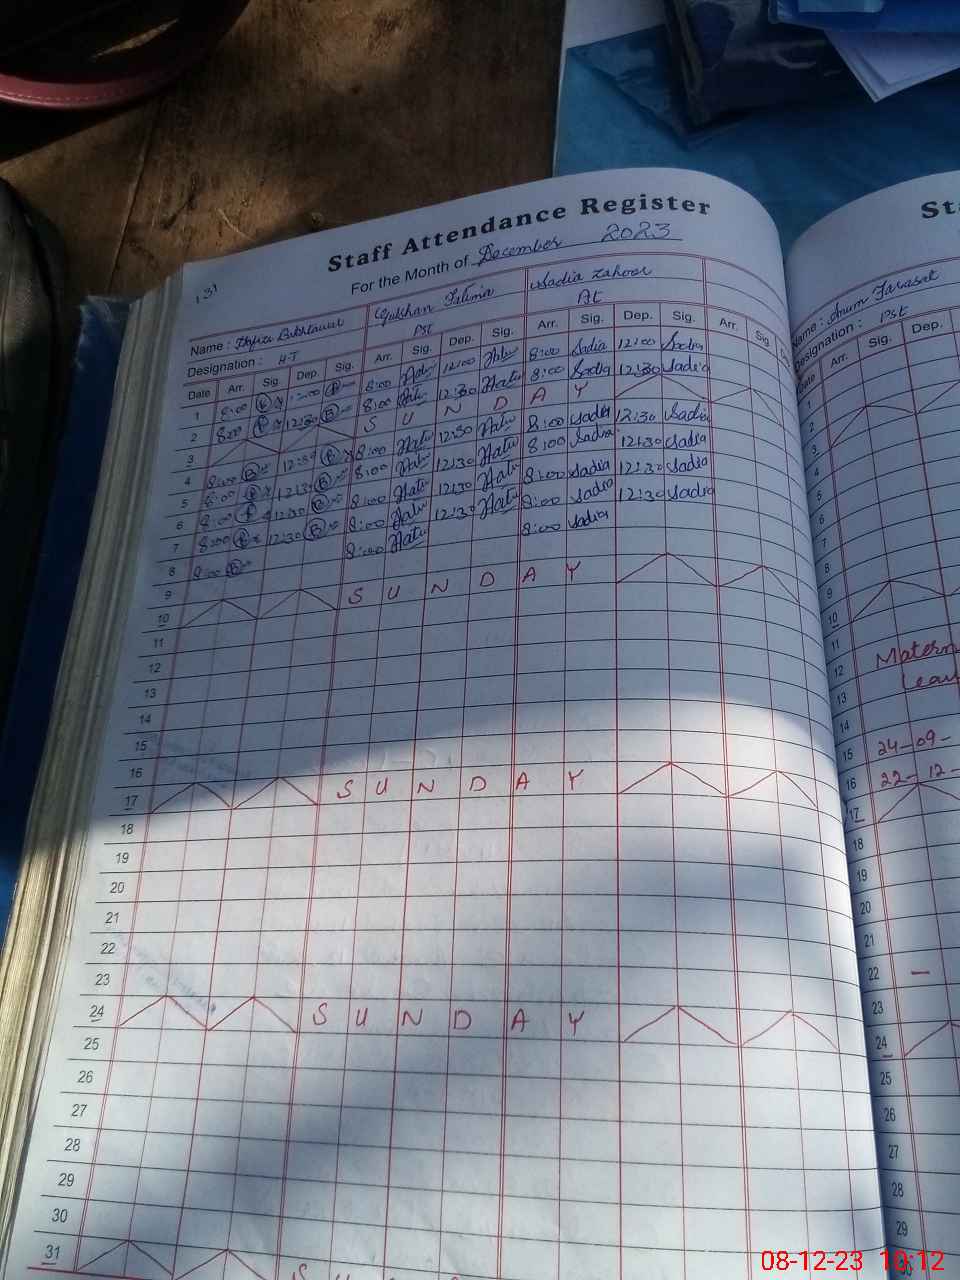 Staff Attendance Register
For the Month of December 2023
131
Name : Hafiza Bakhtawar Gulshan Fatima Sadia Zahoor
Designation : PST At
Date Arr. Sig. Dep. Sig. Arr. Sig. Dep. Sig. Arr. Sig. Dep. Sig. Arr. Sig.
1 8:00 12:00 8:00 12:00 8:00 Sadia 12:00 Sadia
2 8:00 12:30 8:00 12:30 8:00 Sadia 12:30 Sadia
3 S U N D A Y
4 8:00 12:30 8:00 12:30 8:00 Sadia 12:30 Sadia
5 8:00 12:30 8:00 12:30 8:00 Sadia 12:30 Sadia
6 8:00 12:30 8:00 12:30 8:00 Sadia 12:30 Sadia
7 8:00 12:30 8:00 12:30 8:00 Sadia 12:30 Sadia
8 8:00 8:00 8:00 Sadia
9
10 S U N D A Y
11
12
13
14
15
16
17 S U N D A Y
18
19
20
21
22
23
24 S U N D A Y
25
26
27
28
29
30
31 S U
Name : Anum Farasat
Designation : PST
Date Arr. Sig. Dep.
1
2
3
4
5
6
7
8
9
10
11
12
13
14
15 24-09-
16 22-12-
17
18
19
20
21
22 -
23
24
25
26
27
28
29
08-12-23 10:12